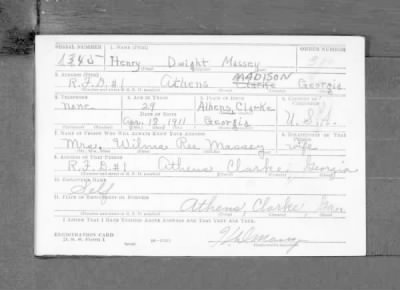 SERIAL NUMBER 1. NAME (Print) ORDER NUMBER
1345 Henry Dwight Massey
(First) (Middle) (Last)
2. ADDRESS (Print) MADISON
R.F.D. #1 Athens Clarke Georgia
3. TELEPHONE 4. AGE IN YEARS 5. PLACE OF BIRTH 6. COUNTRY OF CITIZENSHIP
none 29 Athens, Clarke
DATE OF BIRTH
1911 Georgia U.S.A.
7. NAME OF PERSON WHO WILL ALWAYS KNOW YOUR ADDRESS 8. RELATIONSHIP OF THAT PERSON
Mrs. Wilma Massey wife
9. ADDRESS OF THAT PERSON
R.F.D. #1 Athens Clarke Georgia
10. EMPLOYER'S NAME
Self
11. PLACE OF EMPLOYMENT OR BUSINESS
Athens, Clarke, Ga.
I AFFIRM THAT I HAVE VERIFIED ABOVE ANSWERS AND THAT THEY ARE TRUE.
REGISTRATION CARD
D. S. S. Form 1